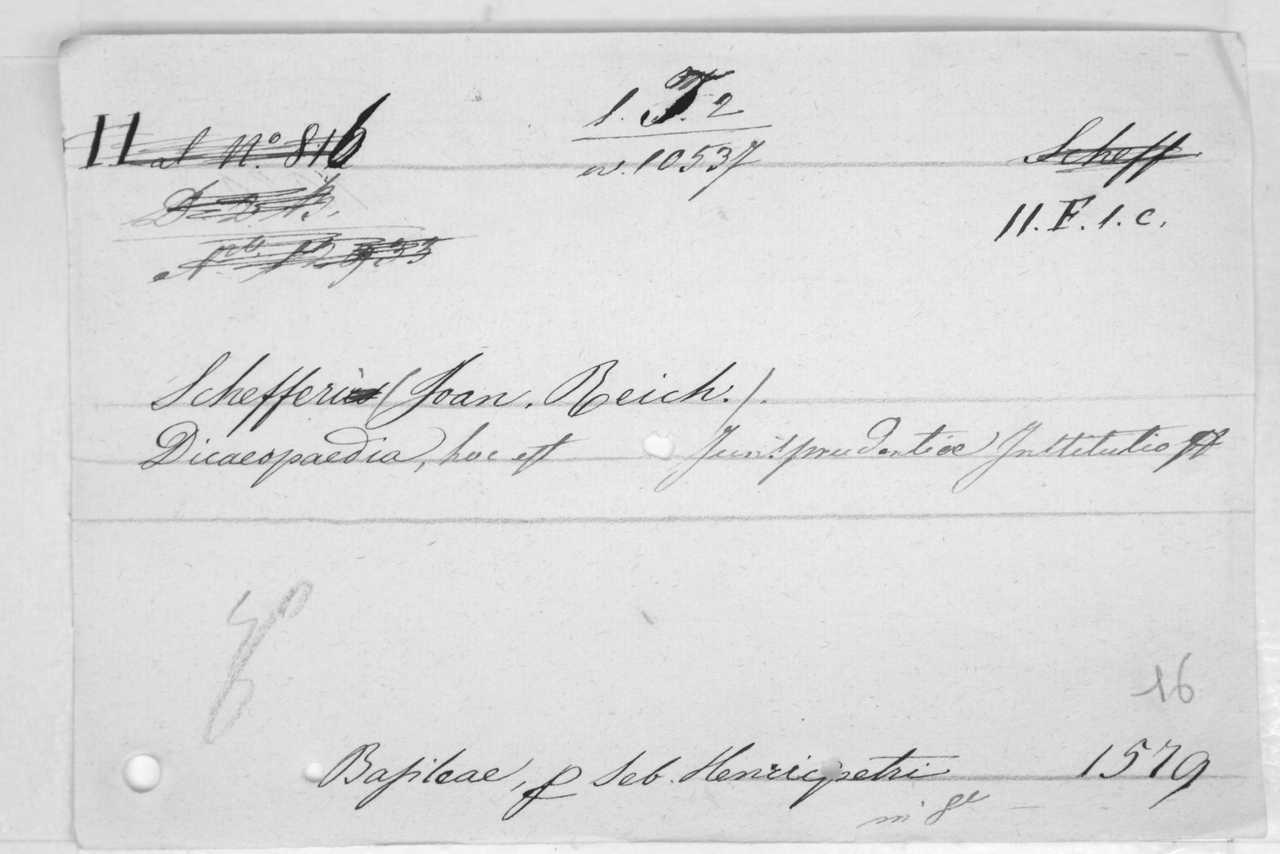 11 al N.º 816
l. F. 2
n. 10537
Scheff
11. F. 1. c.
Schefferi (Joan. Reich.).
Dicaeopaedia, hoc est Jurisprudentiae Institutio
Basileae, p Seb. Henricpetri 1579
16
in 8º